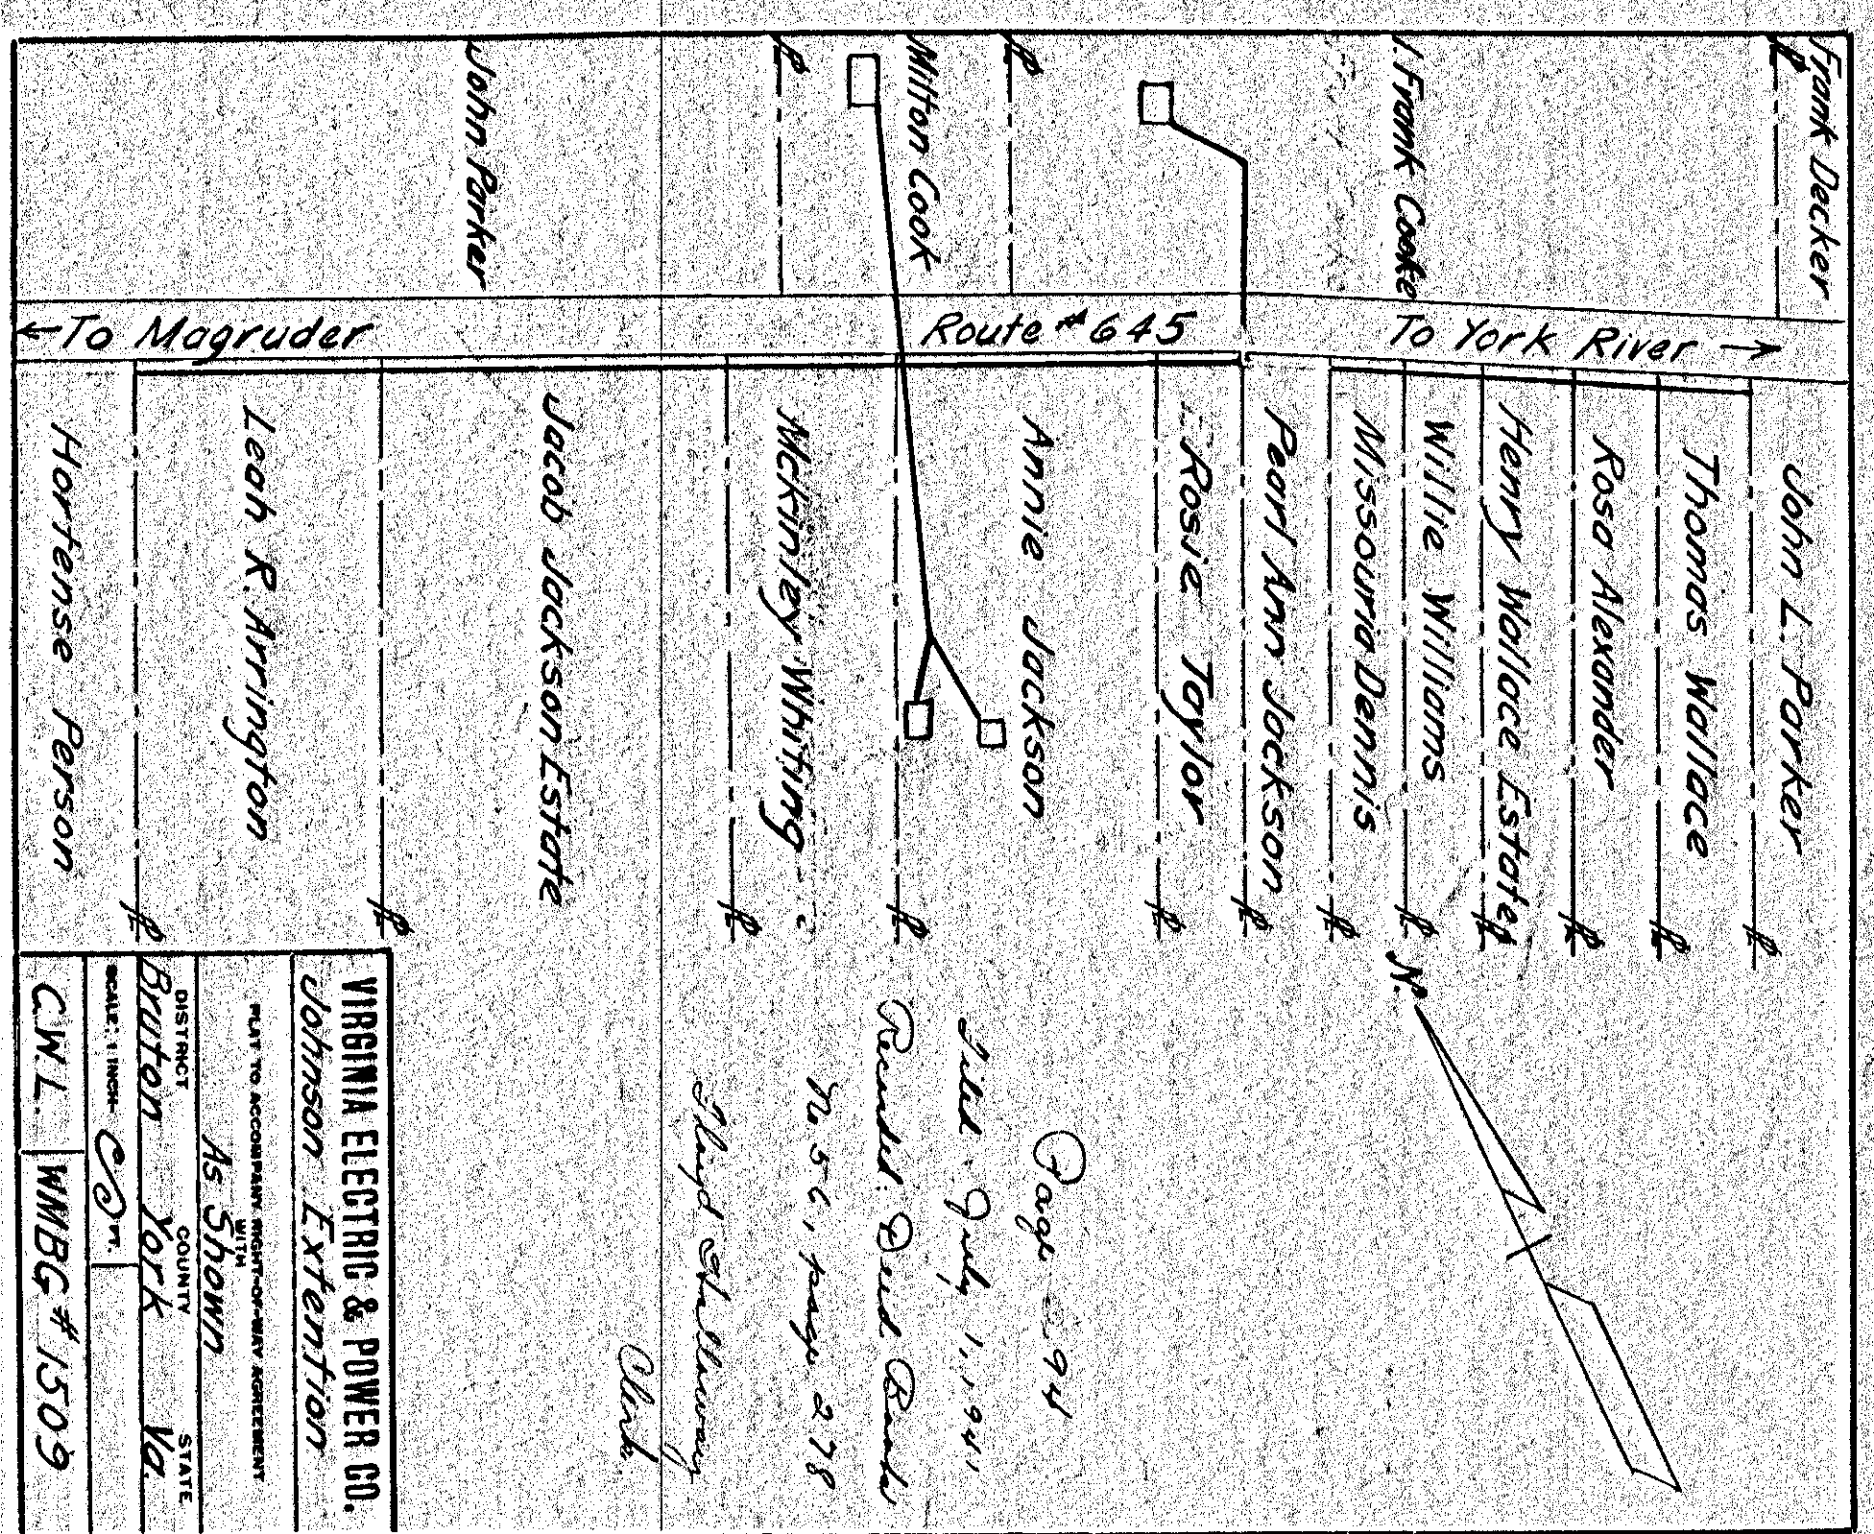 Frank Decker
J. Frank Cooke
Milton Cook
John Parker
←To Magruder
Route #645
To York River →
John L. Parker
Thomas Wallace
Rosa Alexander
Henry Wallace Estate
Willie Williams
Missouria Dennis
Pearl Ann Jackson
Rosie Taylor
Annie Jackson
Mckinley Whiting
Jacob Jackson Estate
Leah R. Arrington
Hortense Person
N.
Page 294
Filed July 1, 1941
Recorded: Deed Books
No 56, page 278
Floyd Holloway
Clerk.
VIRGINIA ELECTRIC & POWER CO.
Johnson Extention
PLAT TO ACCOMPANY RIGHT-OF-WAY AGREEMENT
WITH
As Shown
DISTRICT COUNTY STATE
Bruton York Va.
SCALE: 1 INCH= FT.
C.W.L. WMBG #1509